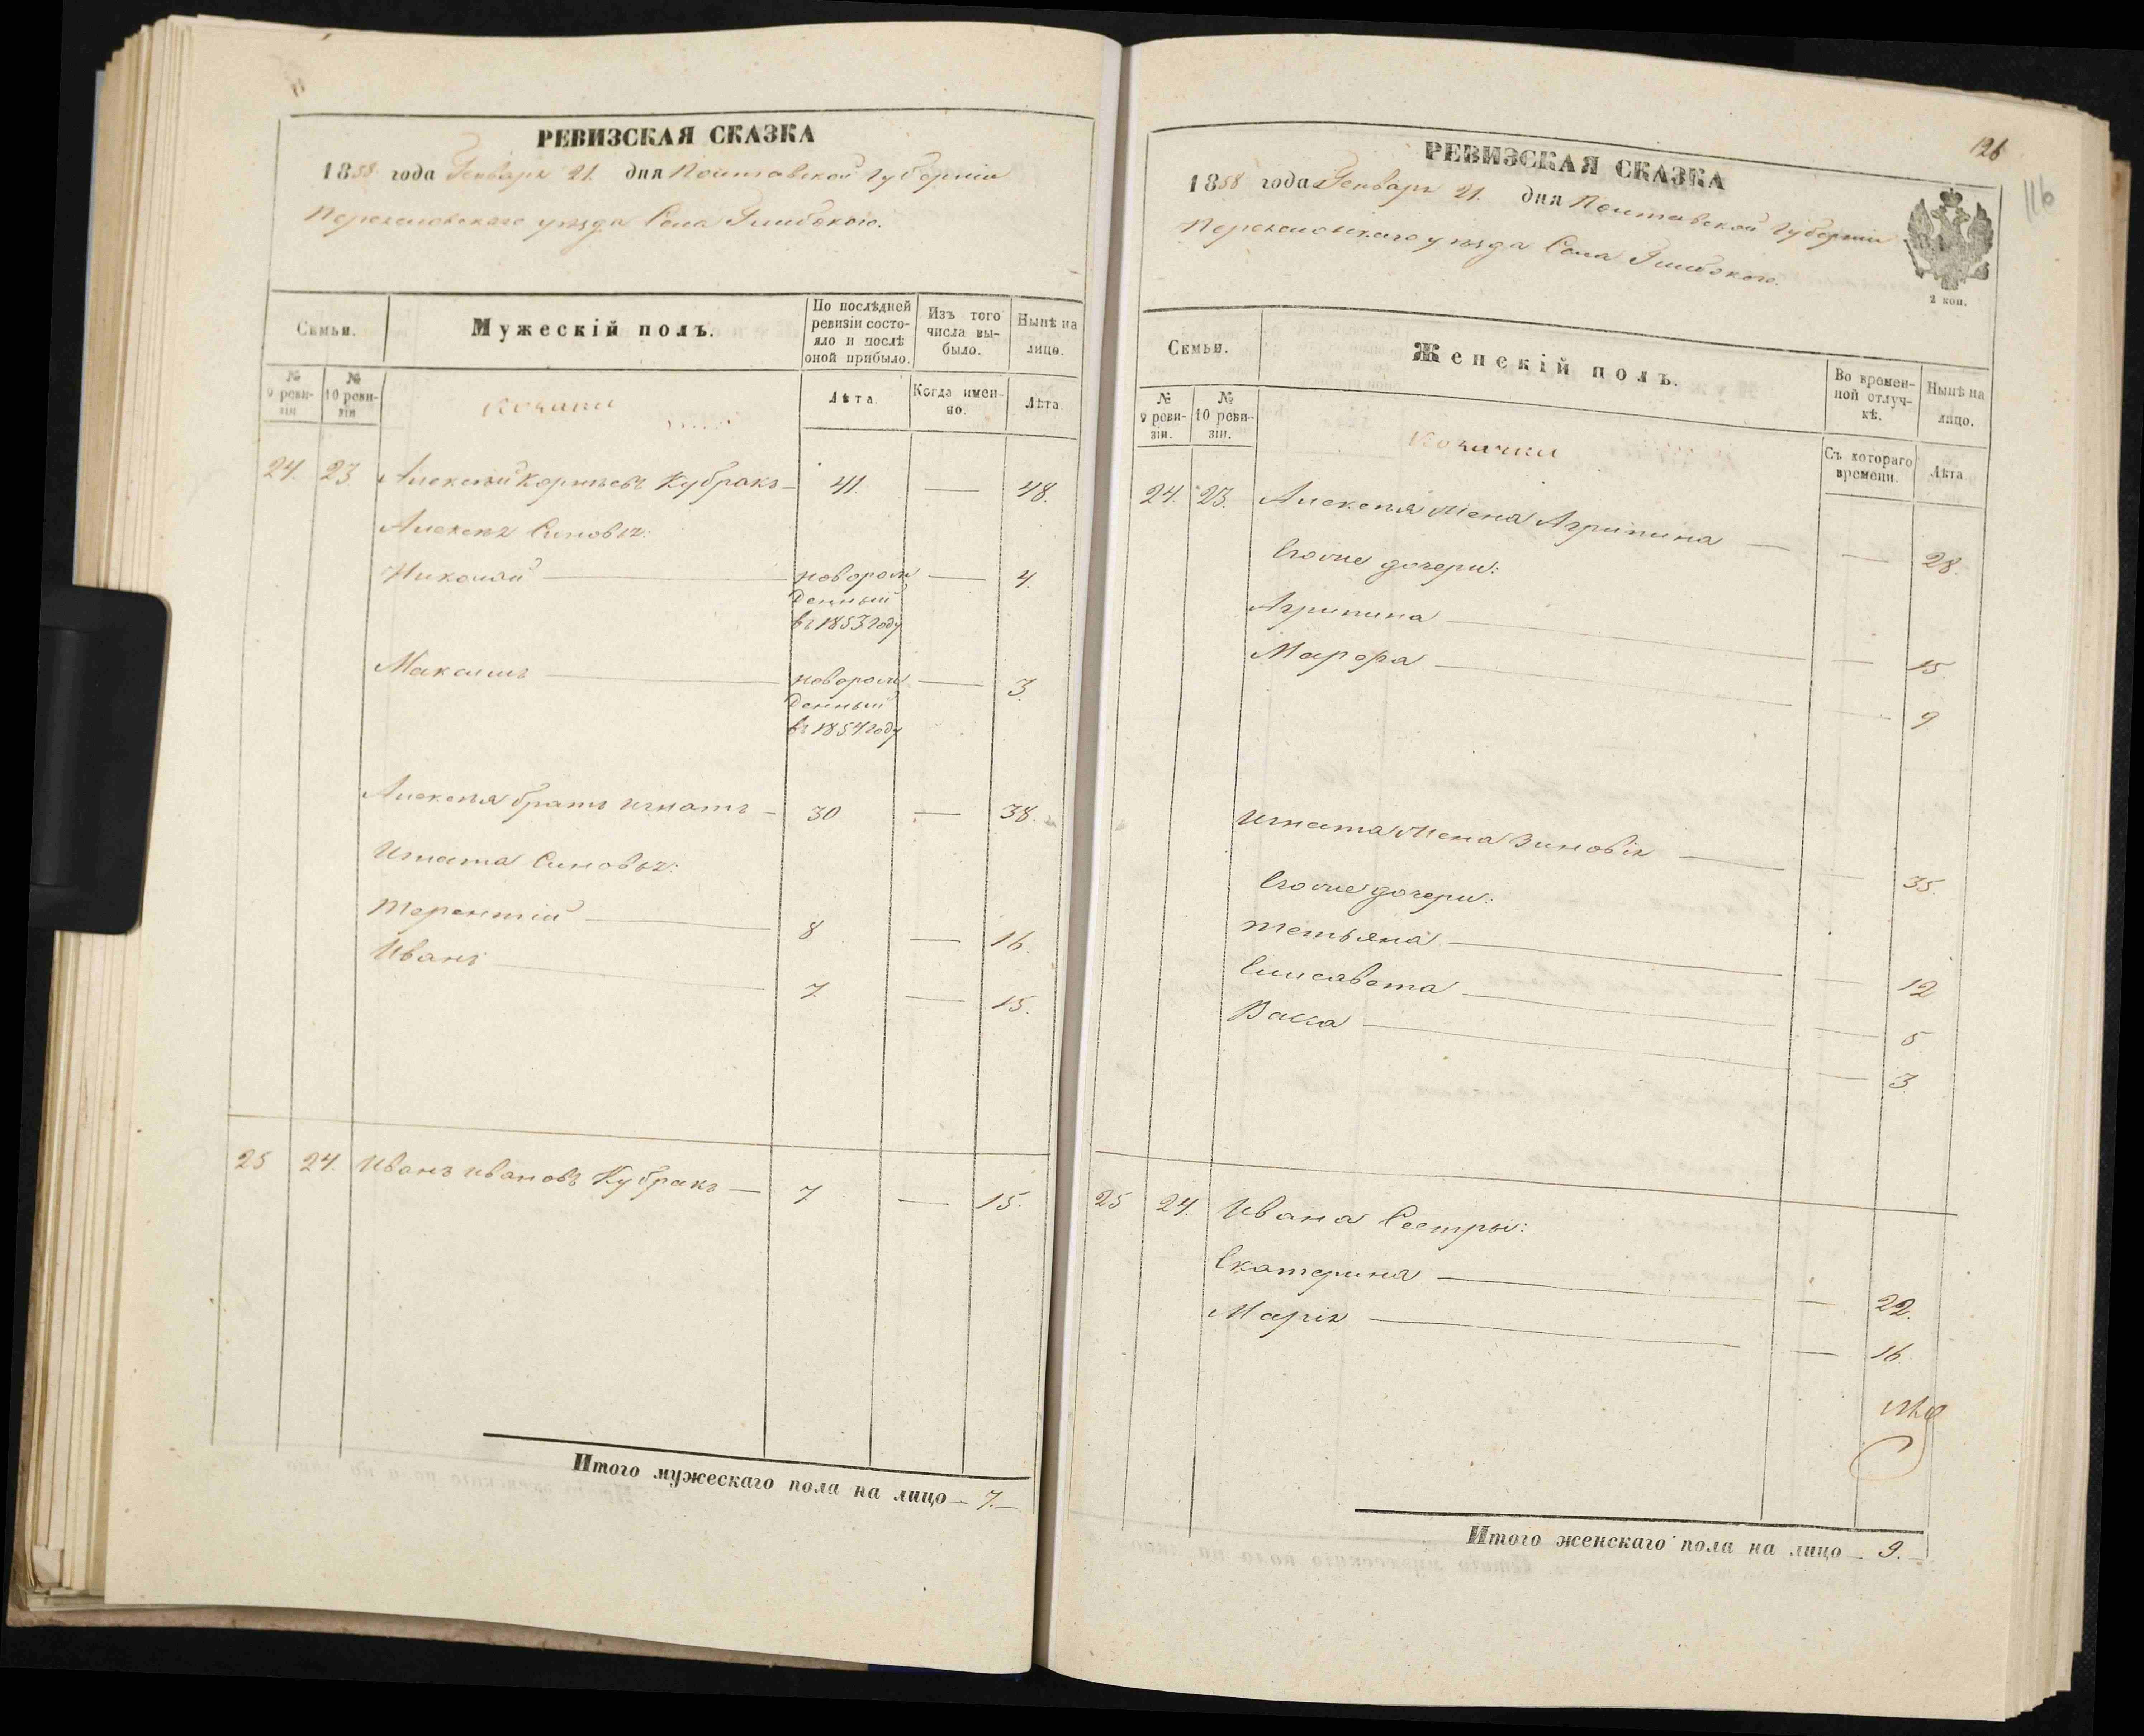 РЕВИЗСКАЯ СКАЗКА
1858 года Генваря 21. дня Полтавской Губерніи
Переяславского уѣзда Села Глибокого.
Семьи.
Мужескій полъ.
По послѣдней ревизіи состояло и послѣ оной прибыло.
Изъ того числа выбыло.
Нынѣ на лицо.
№ 9 ревизіи
№ 10 ревизіи
Козаки
Лѣта.
Когда именно.
Лѣта.
24. 23 Алексѣй Корнѣевъ Кубракъ — 41. — 48.
Алексѣя Синовья:
Николай — новорож — 4.
денный
въ 1853 году
Максимъ — новорож — 3
денный
въ 1854 году
Алексѣя братъ Игнатъ — 30 — 38.
Игната Синовья:
Терентій — 8 — 16.
Иванъ — 7. — 15.
25 24. Иванъ Ивановъ Кубракъ — 7 — 15.
Итого мужескаго пола на лицо — 7. —
126
116
РЕВИЗСКАЯ СКАЗКА
1858 года Генваря 21. дня Полтавской Губерніи
Переяславского уѣзда Села Глибокого.
2 коп.
Семьи.
Женскій полъ.
Во временной отлучкѣ.
Нынѣ на лицо.
№ 9 ревизіи.
№ 10 ревизіи.
Козачки
Съ котораго времени.
Лѣта
24. 23. Алексѣя Жена Агрипина — — 28.
Егоже дочери:
Агрипина — — 15.
Марфа — — 9
Игната Жена Зиновія — — 35.
Егоже дочери:
Тетьяна — — 12
Елисавета — — 5
Васса — — 3
25 24. Ивана Сестры:
Екатерина — — 22.
Марія — — 16.
Итого женскаго пола на лицо — 9. —